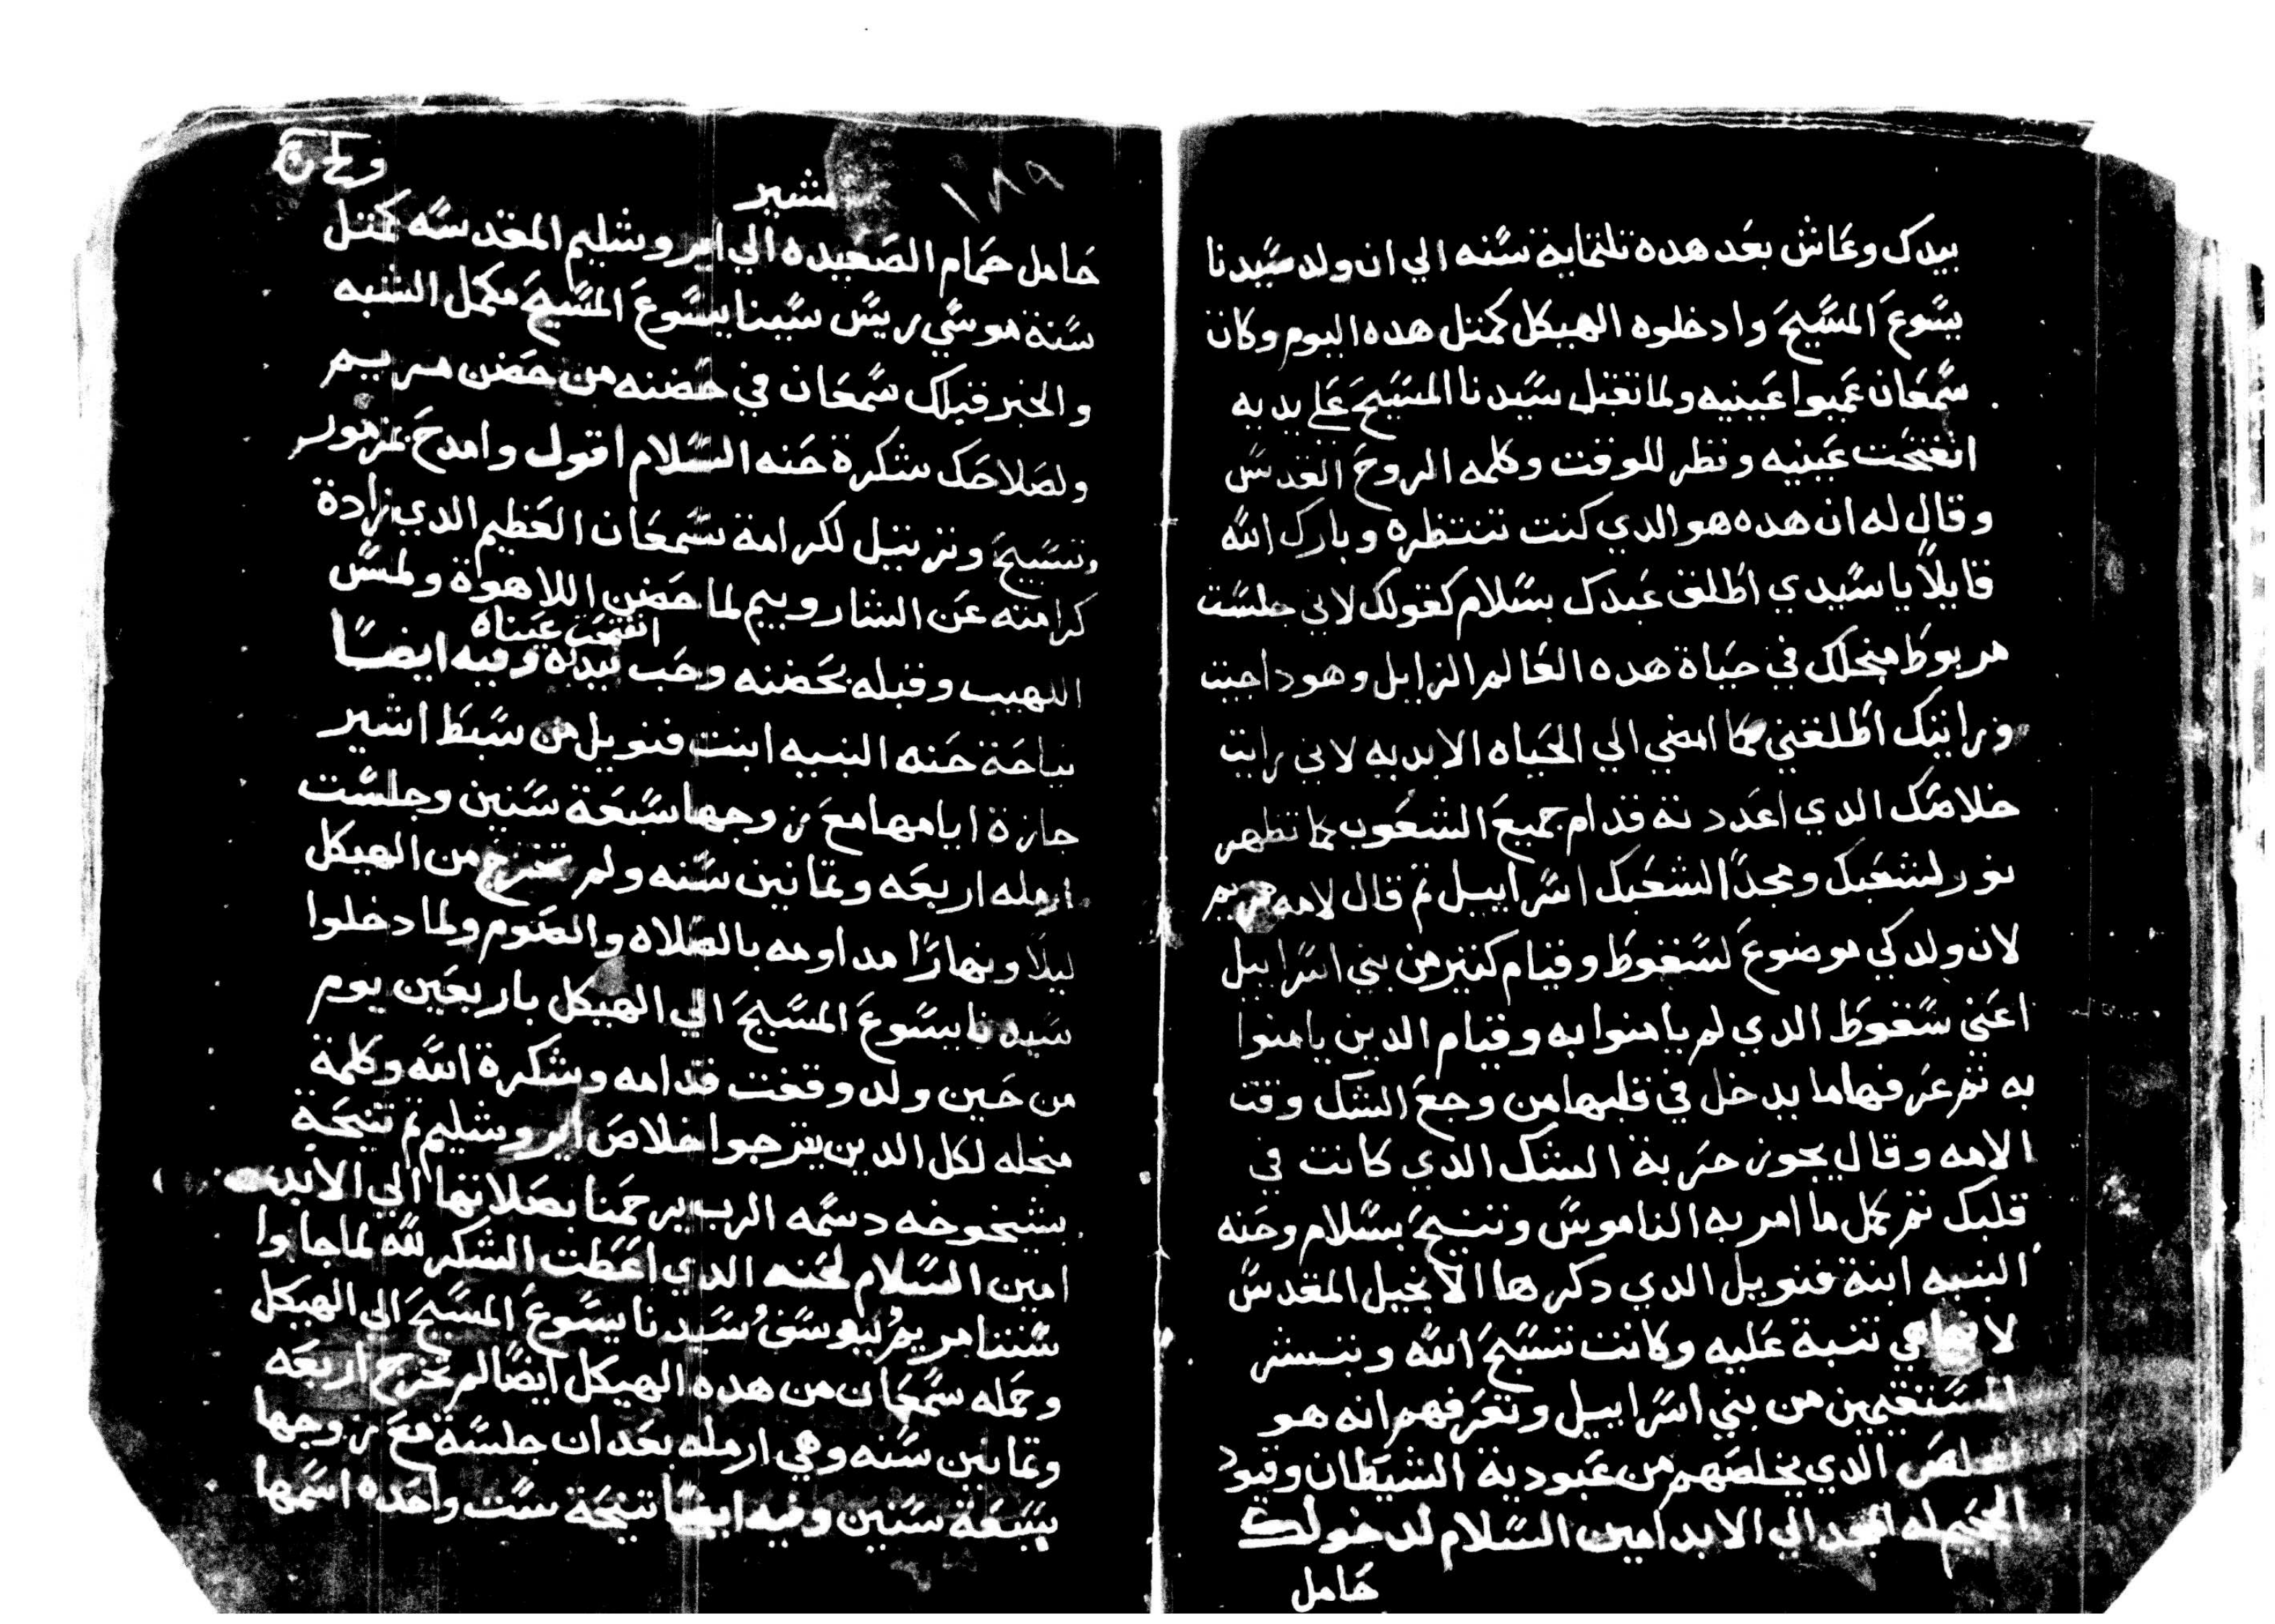 بيدك وعاش بعد هده تلتماية سنه الي ان ولد سيدنا
يسوع المسيح وادخلوه الهيكل كمتل هده اليوم وكان
سمعان عميوا عينيه ولما تقبل سيدنا المسيح علي يديه
انفتحت عينيه ونظر للوقت وكلمه الروح القدس
وقال له ان هده هو الدي كنت تنتظره وبارك الله
قايلاً يا سيدي اطلق عبدك بسلام كقولك لاني جلست
مربوط منجلك في حياة هده العالم الزايل وهودا جيت
ورايتك اطلقني كما امضي الي الحياه الابديه لاني رايت
خلاصك الدي اعددته قدام جميع الشعوب كما تظهر
نور لشعبك ومجداً لشعبك اسراييل تم قال لامه مريم
لان ولدكي موضوع لسقوط وقيام كتير من بني اسراييل
اعني سقوط الدي لم يامنوا به وقيام الدين يامنوا
به تم عرفها ما يدخل في قلبها من وجع الشك وقت
الامه وقال يجوز حربة الشك الدي كانت في
قلبك تم كمل ما امر به الناموس وتنيح بسلام وحنه
النبيه ابنة فنويل الدي دكرها الانجيل المقدس
لانها هي تنبة عليه وكانت تسبح الله وتبشر
المستقيمين من بني اسراييل وتعرفهم انه هو
المخلص الدي يخلصهم من عبودية الشيطان وقيود
الجحيم له المجد الي الابد امين السلام لدخولك
حامل
١٨٩
مشير
حامل حمام الصعيده الي ايروشليم المقدسه كمتل
سنة موسي ريس سيينا يسوع المسيح مكمل الشبه
والخبر قبلك سمعان في حضنه من حضن مريم
ولصلاحك شكرة حنه السلام اقول وامدح بمزمور
وتسبيح وترتيل لكرامة سمعان العظيم الدي زادة
كرامته عن الشاروبيم لما حضن اللاهوة ولمس
انفتحت عيناه
اللهيب وقبله بحضنه وحب بيده وفيه ايضاً
نياحة حنه النبيه ابنت فنويل من سبط اشير
جازة ايامها مع زوجها سبعة سنين وجلست
ارمله اربعه وتمانين سنه ولم تخرج من الهيكل
ليلاً ونهاراً مداومه بالصلاه والصوم ولما دخلوا
سيدنا يسوع المسيح الي الهيكل باربعين يوم
من حين ولد وقفت قدامه وشكرة الله وكلمة
منجله لكل الدين يترجوا خلاص ايروشليم تم تنيحة
بشيخوخه دسمه الرب يرحمنا بصلاتها الي الابد
امين السلام لحنه الدي اعطت الشكر لله لما جاوا
ستنا مريم يوسف سيدنا يسوع المسيح الي الهيكل
وحمله سمعان من هده الهيكل ايضاً لم تخرج اربعه
وتمانين سنه وهي ارمله بعد ان جلسة مع زوجها
بسبعة سنين وفيه ايضاً تنيحة ست واحده اسمها